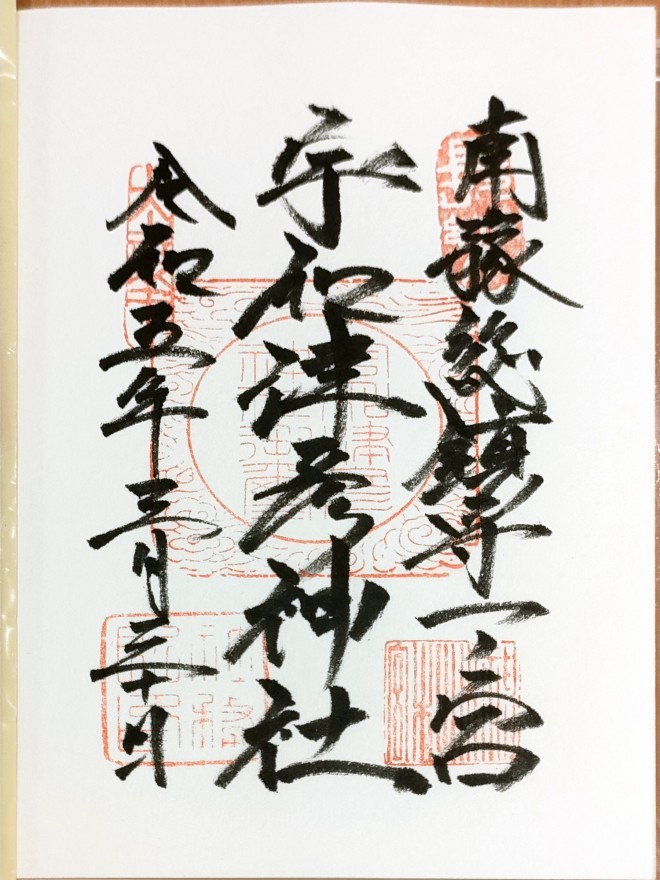 南豫総鎮守一宮
宇和津彦神社
令和五年三月三十日